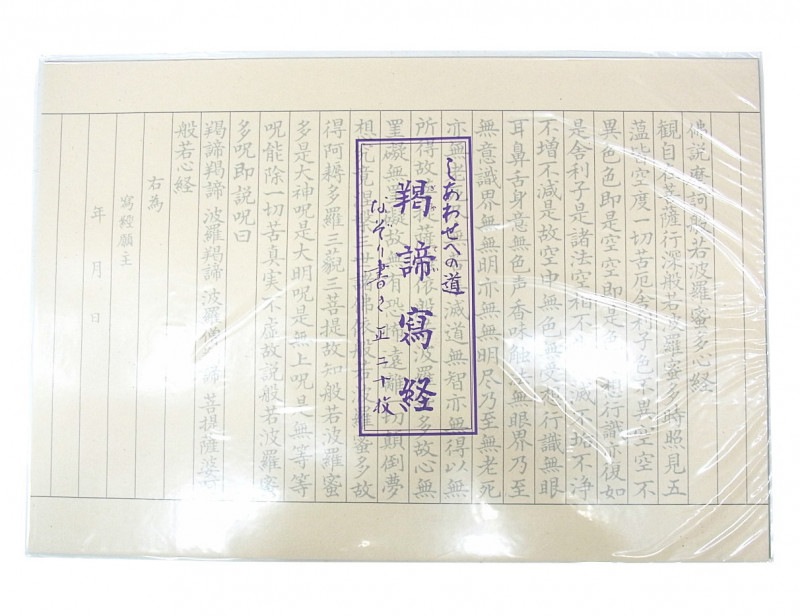 佛説摩訶般若波羅蜜多心経
観自在菩薩行深般若波羅蜜多時照見五
蘊皆空度一切苦厄舎利子色不異空空不
異色色即是空空即是色 想行識亦復如
是舎利子是諸法空相不生不滅不垢不浄
不増不減是故空中無色無受想行識無眼
耳鼻舌身意無色声香味触法無眼界乃至
無意識界無無明亦無無明尽乃至無老死
亦無 滅道無智亦無得以無
所得故 薩 依般 波羅 多故心無
罣礙無 故 有恐怖遠離 切顛倒夢
想究竟 諸佛依般若波羅蜜多故
得阿耨多羅三藐三菩提故知般若波羅蜜
多是大神呪是大明呪是無上呪是無等等
呪能除一切苦真実不虚故説般若波羅蜜
多呪即説呪曰
羯諦羯諦 波羅羯諦 波羅僧 諦 菩提薩婆
般若心経
右為
寫經願主
年 月 日
しあわせへの道
羯諦寫経
なぞり書き 正二十枚